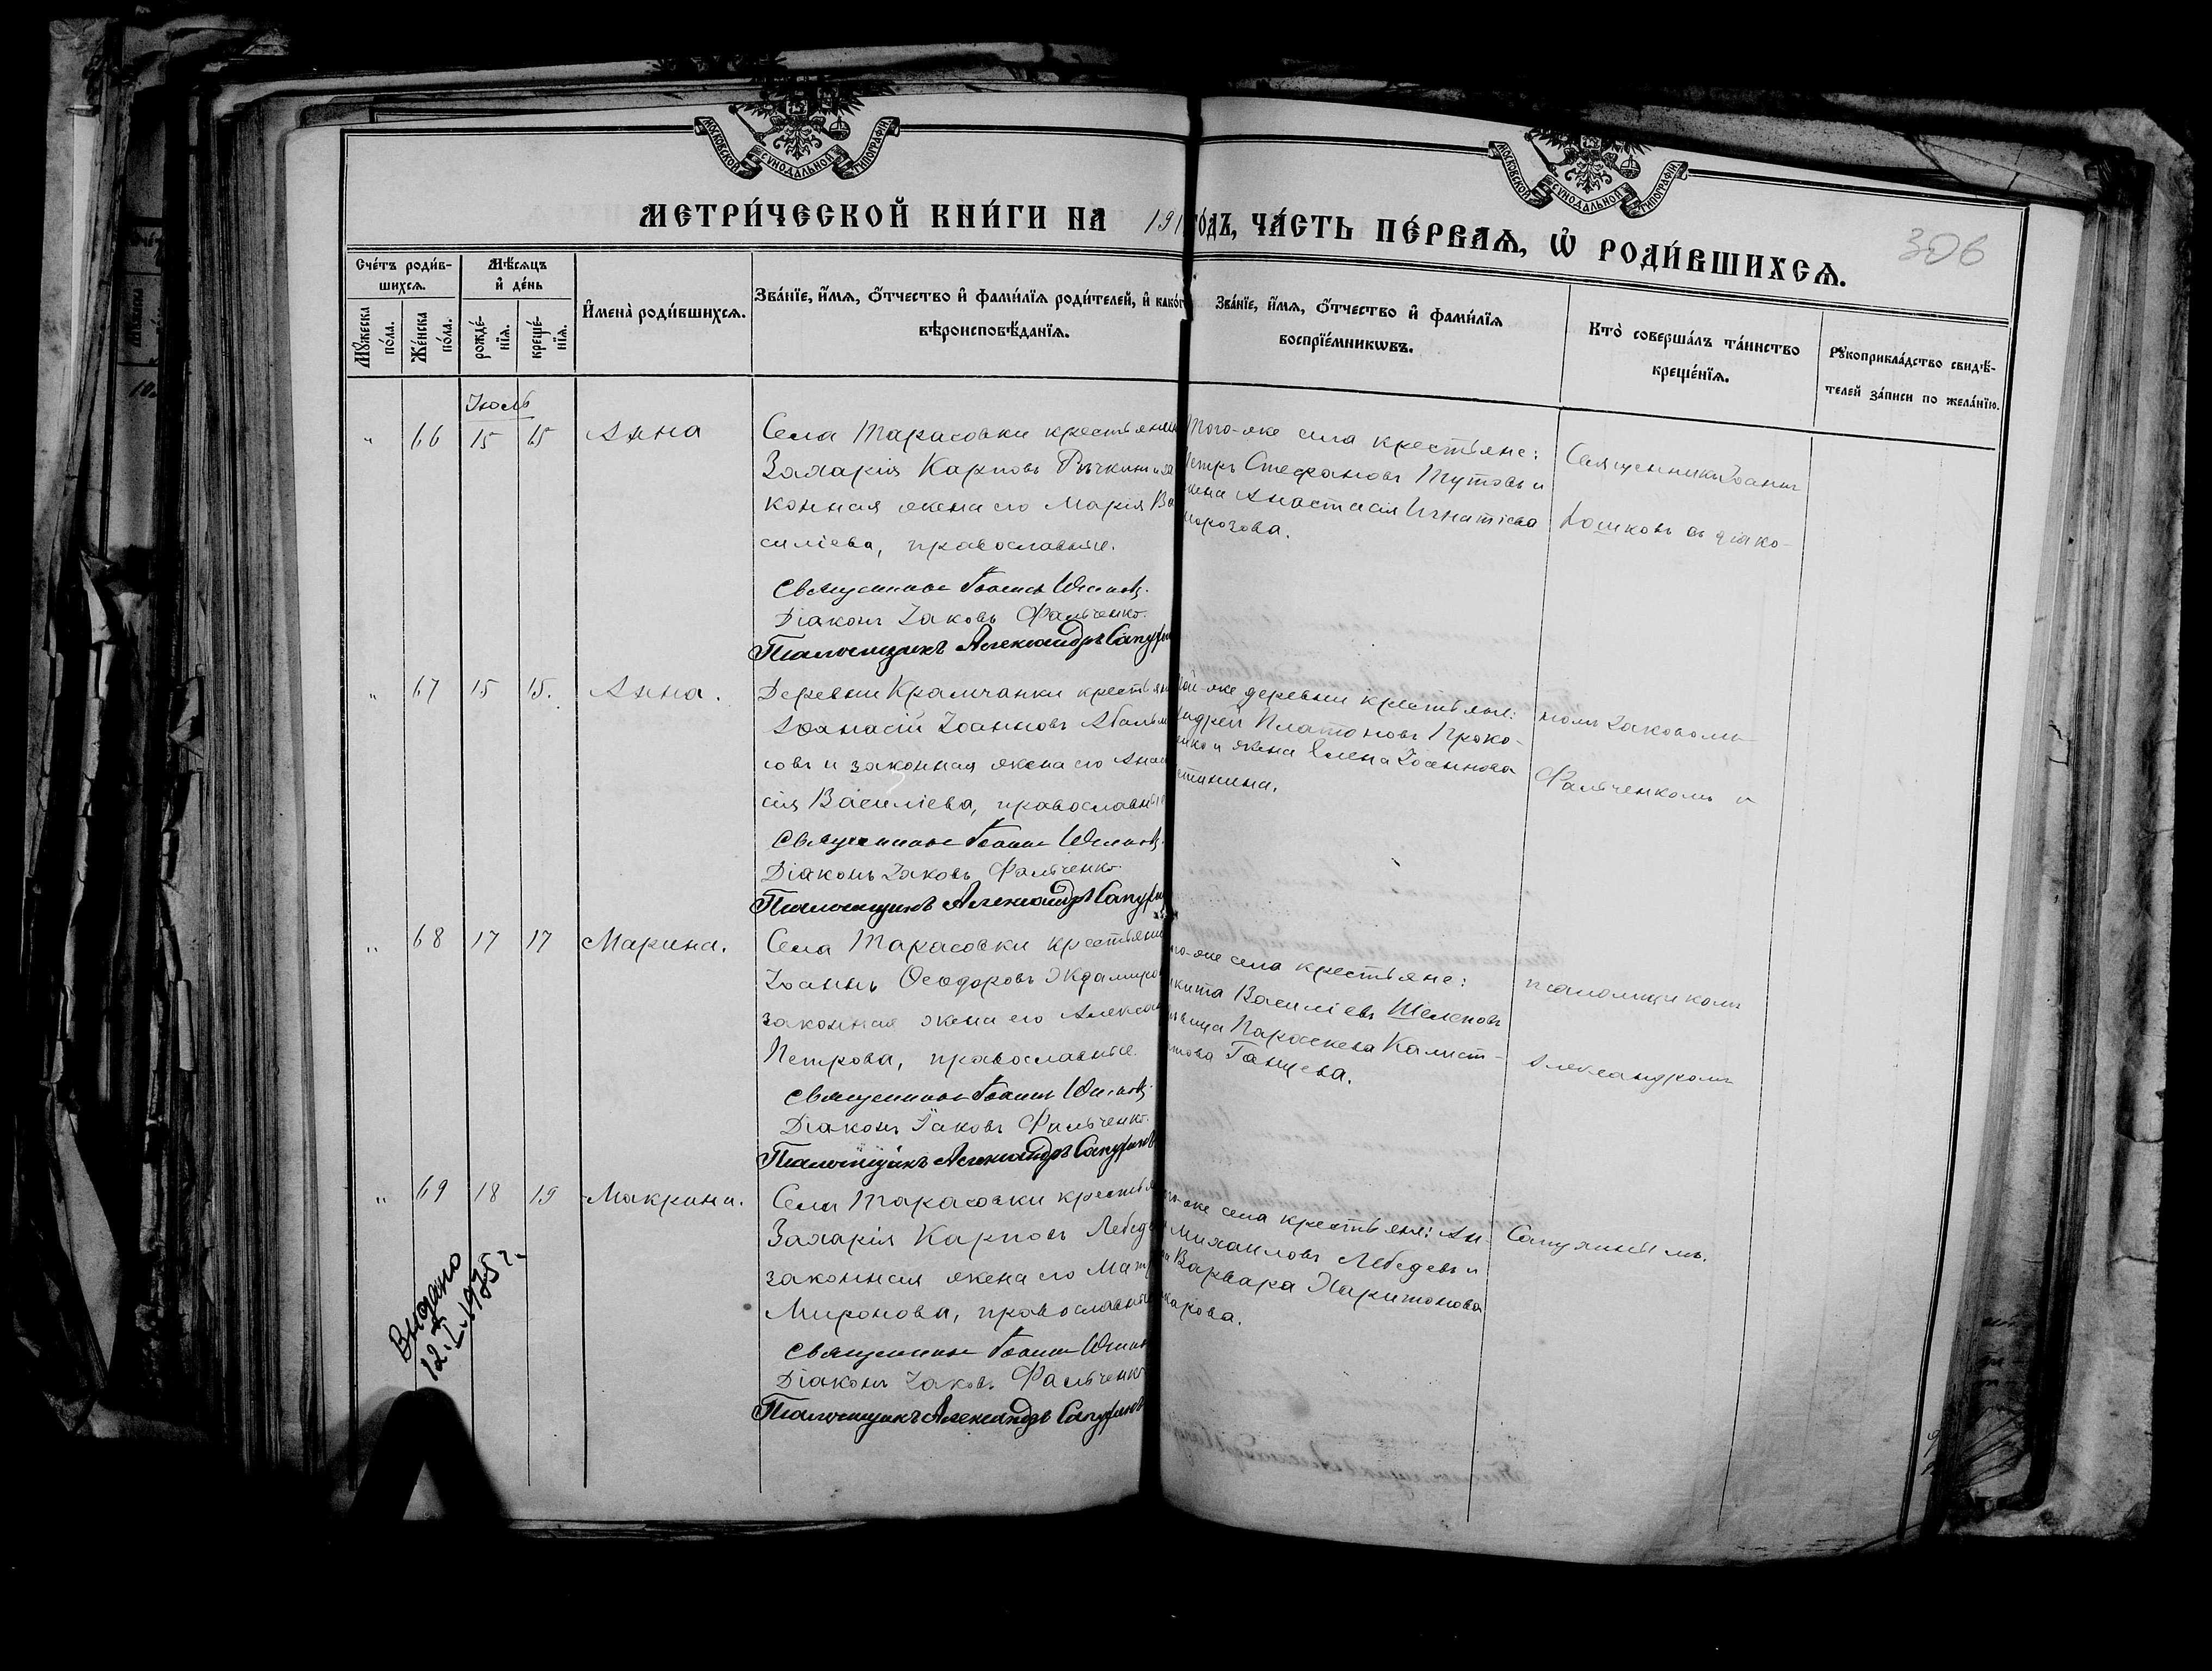 МОСКОВСКОЙ СѴНОДАЛЬНОЙ ТИПОГРАФІИ
МОСКОВСКОЙ СѴНОДАЛЬНОЙ ТИПОГРАФІИ
МЕТРИ́ЧЕСКОЙ КНИ́ГИ НА 191
ГО́ДЪ, ЧА́СТЬ ПЕ́РВАѦ, Ѡ҆ РОДИ́ВШИХСѦ.
306
Сче́тъ роди́в-
шихсѧ.
Мꙋ́жеска по́ла.
Же́нска по́ла.
Мѣ́сѧцъ и҆ де́нь
рожде́-
нїѧ.
креще́-
нїѧ.
И҆мена̀ роди́вшихсѧ.
Зва́нїе, и҆́мѧ, ѻ҆́тчество и҆ фами́лїѧ роди́телей, и҆ како́г
вѣроисповѣ́данїѧ.
Зва́нїе, и҆́мѧ, ѻ҆́тчество и҆ фами́лїѧ
воспрїе́мникѡвъ.
Кто̀ соверша́лъ та́инство
креще́нїѧ.
Рꙋкоприкла́дство свидѣ́-
телей за́писи по жела́нїю.
Іюль
" 66 15 15 Анна
Села Тарасовки крестьяни
Захарія Карповъ Рѣчкинъ и за
конная жена его Марія Ва
силіева, православные.
Священникъ Іоаннъ
Діаконъ Іаковъ Фальченко.
Псаломщикъ Александръ
Того-же села крестьяне:
Петръ Стефановъ Тутовъ и
жена Анастасія Игнатіева
Морозова.
Священникъ Іоаннъ
съ діако-
" 67 15 15. Анна.
Деревни Крамчанки крестьян
Афанасій Іоанновъ
овъ и законная жена его Анаст
сія Василіева, православны
Священникъ Іоаннъ
Діаконъ Іаковъ Фальченко
Псаломщикъ Александръ
той-же деревни крестьяне:
Андрей Платоновъ Проко-
енко и жена Елена Іоаннова
номъ Іаковомъ
Фальченкомъ и
" 68 17 17 Марина.
Села Тарасовки крестьяни
Іоаннъ Ѳеодоровъ Ждамиро
законная жена его Алексан
Петрова, православные.
Священникъ Іоаннъ
Діаконъ Іаковъ Фальченко.
Псаломщикъ Александръ
го-же села крестьяне:
икита Василіевъ Шелеповъ
Параскева Калист-
това Ганцева.
псаломщикомъ
Александромъ
" 69 18 19 Макрина.
Села Тарасовки крестья
Захарія Карповъ Лебед
законная жена его Матр
Миронова, православные
Священникъ Іоаннъ
Діаконъ Іаковъ Фальченко
Псаломщикъ Александръ
го-же села крестьяне: Ан-
Михаиловъ Лебедевъ и
Варвара Харитонова
карова.
Выдано
12.I.1935 г.